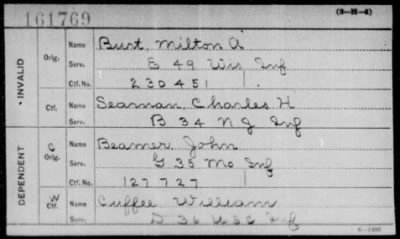 161769
(3-H-4)
INVALID
Orig.
Name Burt, Milton A
Serv. E 49 Wis Inf
Ctf. No. 230451
Ctf.
Name Seaman, Charles H
Serv. B 34 N J Inf
DEPENDENT
C
Orig.
Name Beamer, John
Serv. G 35 Mo Inf
Ctf. No. 127727
W
Ctf.
Name Cuffee William
Serv. D 36 USC Inf